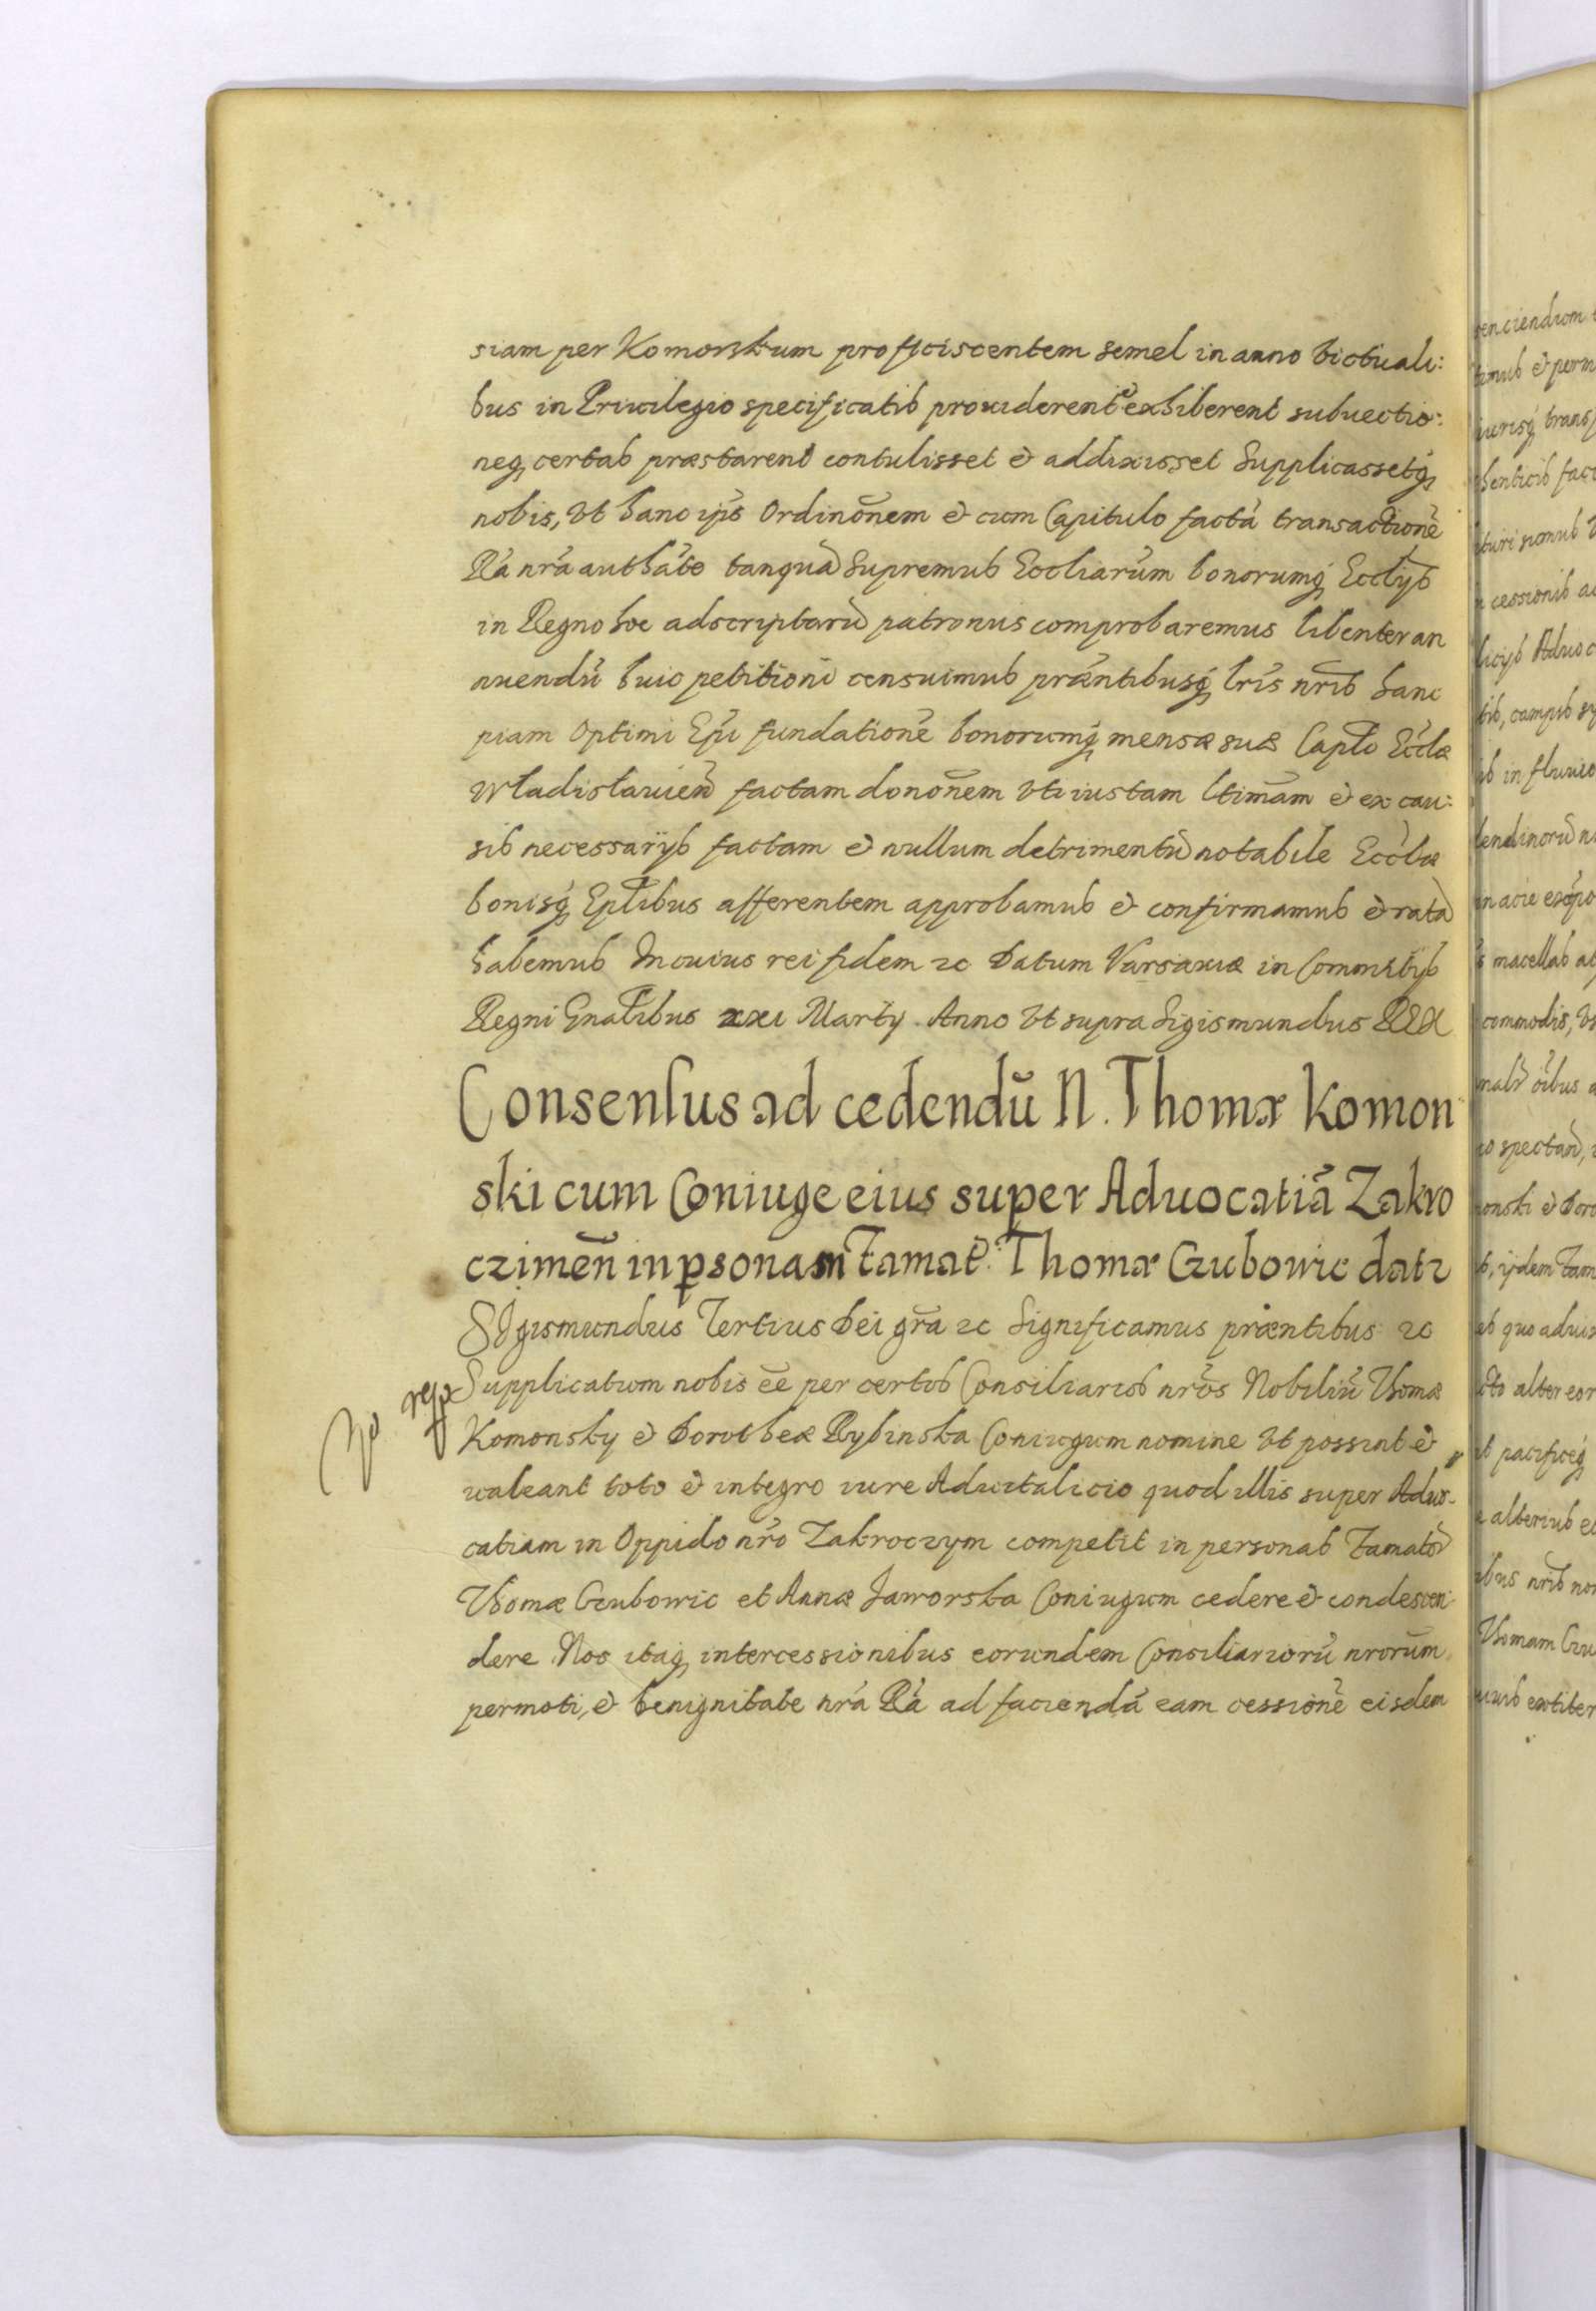 siam per Komorskum proficiscentem semel in anno victuali:
bus in Priuilegio specificatis prouiderent et exhiberent subuectio:
neq, certas præstarent contulisset et addixisset Supplicassetq,
nobis, Vt hanc ips Ordinõnem et cum Capitulo factã transactionẽ
Rã nrã authãte tanquã Supremus Eccliarũm bonorumq, Ecclijs
in Regno hoc adscriptorũ patronus comprobaremus libenter an
nuendũ huic petitioni censuimus præntibusq, lrĩs nrĩs hanc
piam Optimi Epĩ fundationẽ bonorumq, mensæ suæ Caplo Ecclæ
Wladislauieñ factam donoñem vti iustam ltimãm et ex cau:
sis necessarijs factam et nullum detrimentũ notabile Ecclæ
bonisq, Eplibus afferentem approbamus et confirmamus et ratã
habemus In cuius rei fidem zc Datum Varsauiæ in Commitijs
Regni Gnalibus xxi Martij. Anno Vt supra Sigismundus REX
Consensus ad cedendũ N. Thomæ Komon
ski cum Coniuge eius super Aduocatiã Zakro
czimeñ in psonam Famat. Thomæ Gzubowic datr
SIgismundus Tertius Dei grã zc Significamus præntibus zc
Supplicatum nobis eẽ per certos Consiliarios nrõs Nobiliũ Thomæ
Komonsky et Dorotheæ Rybinska Coniugum nomine Vt possint et
ualeant toto et integro iure Aduitalicio quod illis super Aduo-
catiam in Oppido nrõ Zakroczym competit in personas Famatõ
Thomæ Gzubowic et Annæ Jaworska Coniugum cedere et condescen:
dere. Nos itaq, intercessionibus eorundem Consiliariorũ nrorũm
permoti, et benignitate nrã Rã ad faciendã eam cessionẽ eisdem